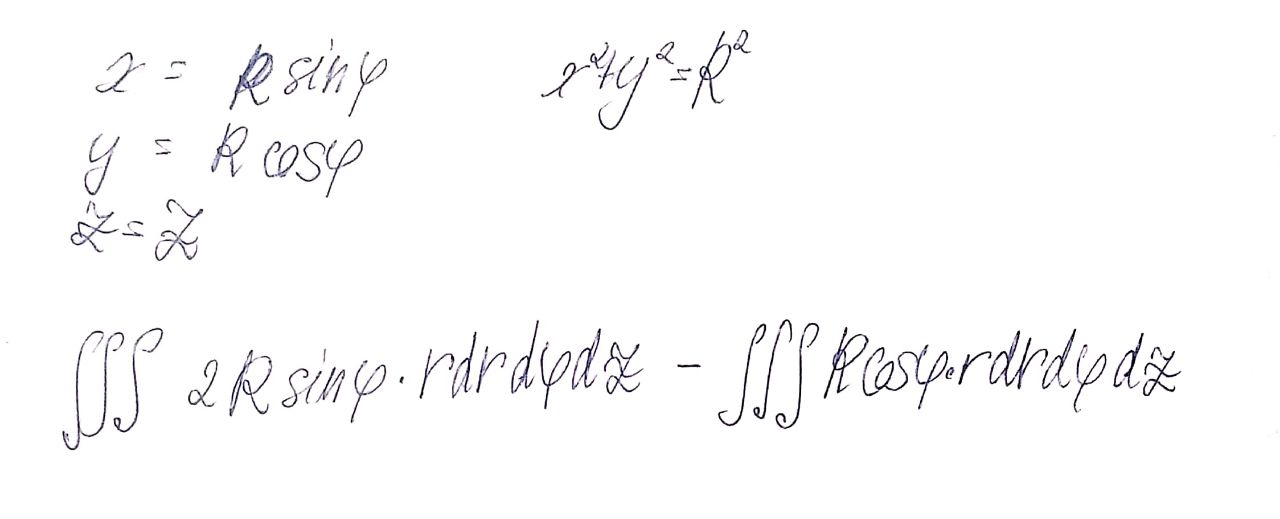 x = R sinφ    x²+y²=R²
y = R cosφ
z = z
∭ 2R sinφ · rdrdφdz − ∭ R cosφ · rdrdφdz